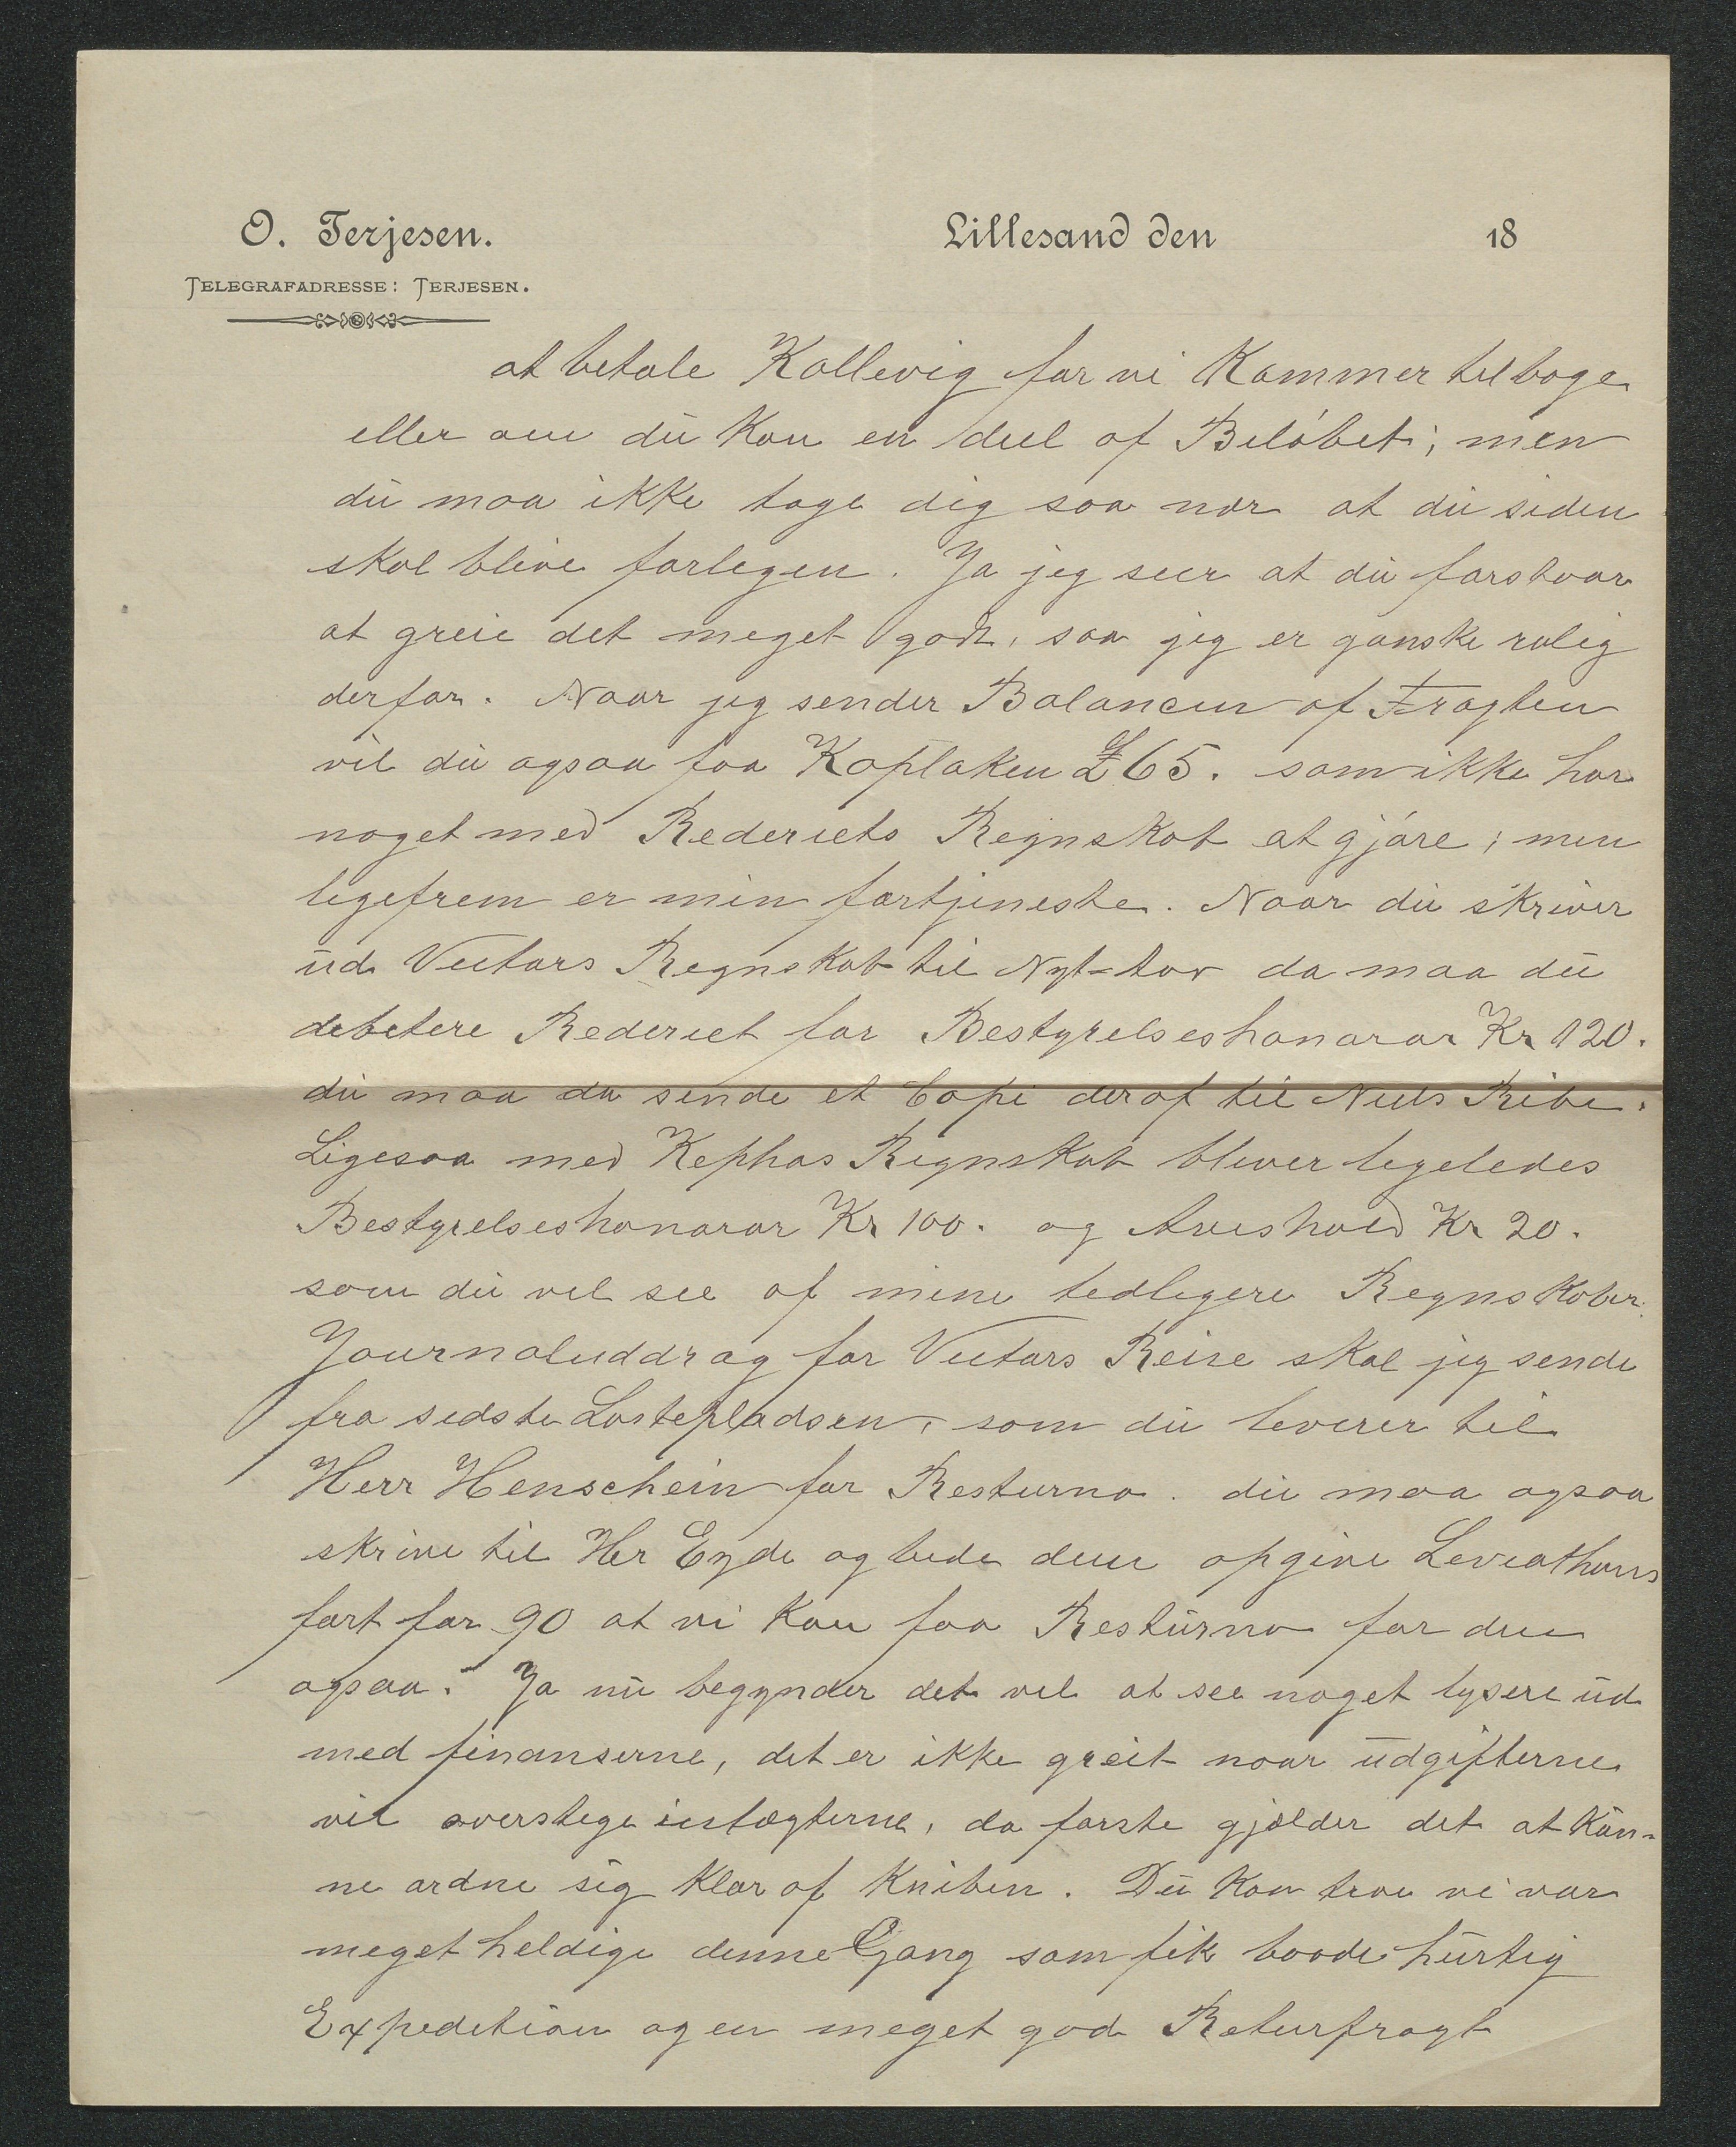 O. Terjesen.
Lillesand den 18
TELEGRAFADRESSE: TERJESEN.
at betale Kallevig før vi Kommer tilbage
eller om du kan en deel af Beløbet; men
du maa ikke tage dig saa nær at du siden
skal blive forlegen. Ja jeg seer at du forstaar
at greie det meget godt, saa jeg er ganske rolig
derfor. Naar jeg sender Balancen af Fragten
vil du ogsaa faa Kaplaken £65. som ikke har
noget med Rederiets Regnskab at gjøre; men
ligefrem er min fortjeneste. Naar du skriver
ud Vectors Regnskab til Nyt-aar da maa du
debetere Rederiet for Bestyrelseshonorar Kr 120.
du maa da sende et Copi deraf til Niels Ribe.
Ligesaa med Kephas Regnskab bliver ligeledes
Bestyrelseshonorar Kr 100. og Avishold Kr 20.
som du vil see af mine tidligere Regnskaber.
Journaluddrag for Vectors Reise skal jeg sende
fra sidste Lastepladsen, som du leverer til
Herr Henschein for Resturno. du maa ogsaa
skrive til Her Eyde og bede dem opgive Leviathans
fart for 90 at vi kan faa Resturno for den
ogsaa. Ja nu begynder det vel at see noget lysere ud
med finanserne, det er ikke greit naar udgifterne
vil overstige indtægterne, da første gjælder det at kun-
ne ordne sig klar af kniben. Du kan troe vi var
meget heldige denne Gang som fik baade hurtig
Expedition og en meget god Returfragt